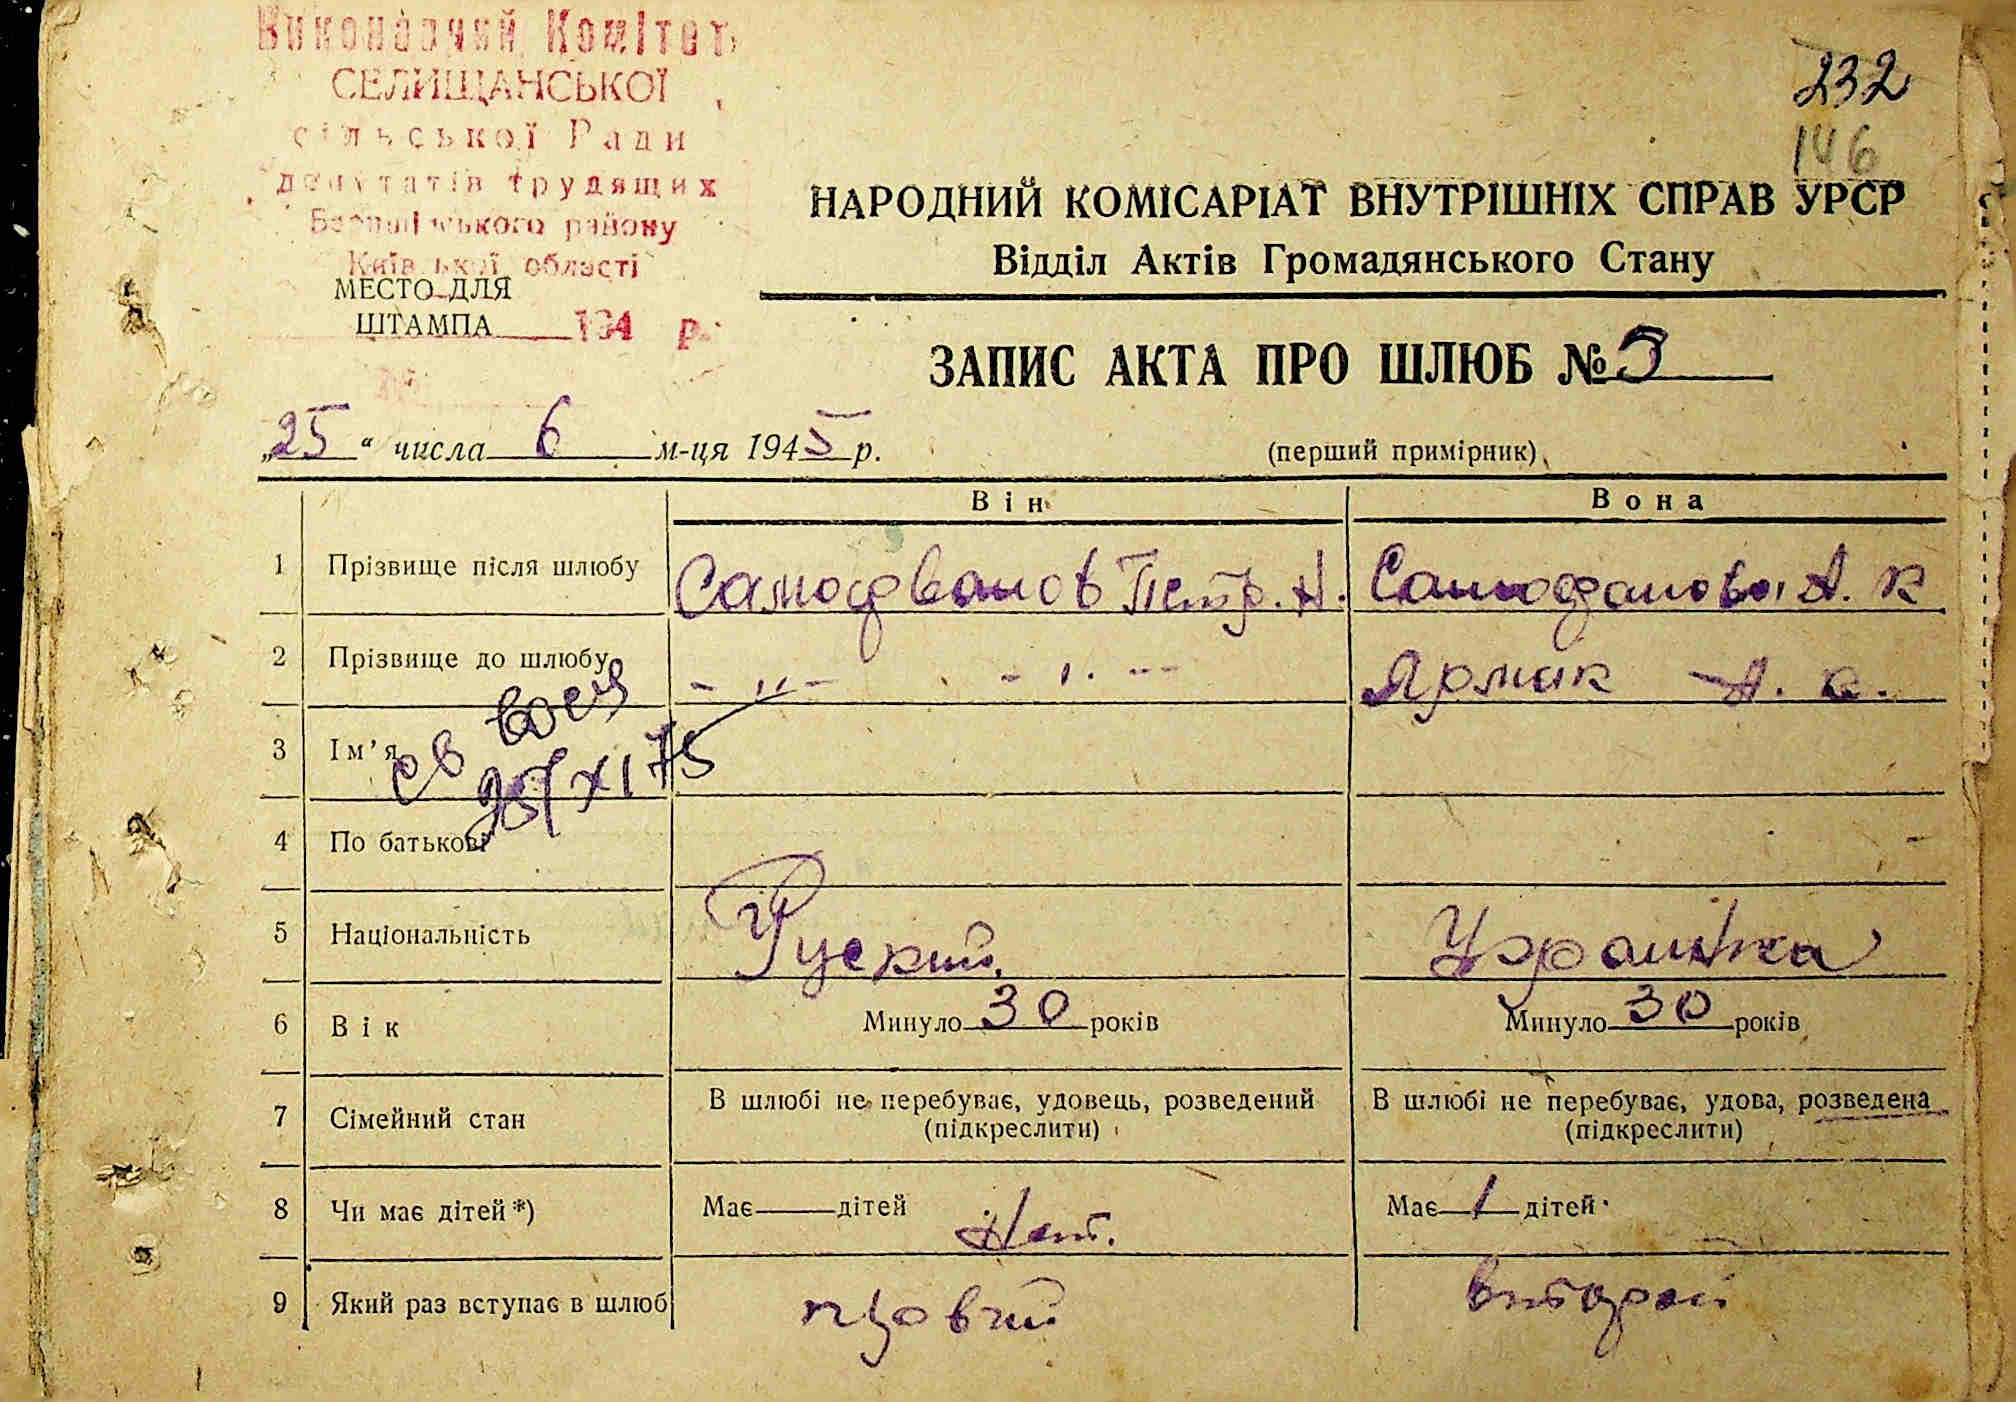 Виконавчий Комітет
СЕЛИЩАНСЬКОЇ
сільської Ради
депутатів трудящих
району
Київської області
МЕСТО ДЛЯ
ШТАМПА 194 р.
232
146
НАРОДНИЙ КОМІСАРІАТ ВНУТРІШНІХ СПРАВ УРСР
Відділ Актів Громадянського Стану
ЗАПИС АКТА ПРО ШЛЮБ № 5
„25“ числа 6 м-ця 1945 р.
(перший примірник)
Він Вона
1 Прізвище після шлюбу Петр. Н. А. К
2 Прізвище до шлюбу - „ - - „ - Ярмак А. К.
3 Ім'я
св 25/XI 75
4 По батькові
5 Національність Руский Украинка
6 Вік Минуло 30 років Минуло 30 років
7 Сімейний стан В шлюбі не перебуває, удовець, розведений В шлюбі не перебуває, удова, розведена
(підкреслити) (підкреслити)
8 Чи має дітей*) Має дітей Нет. Має 1 дітей
9 Який раз вступає в шлюб второй